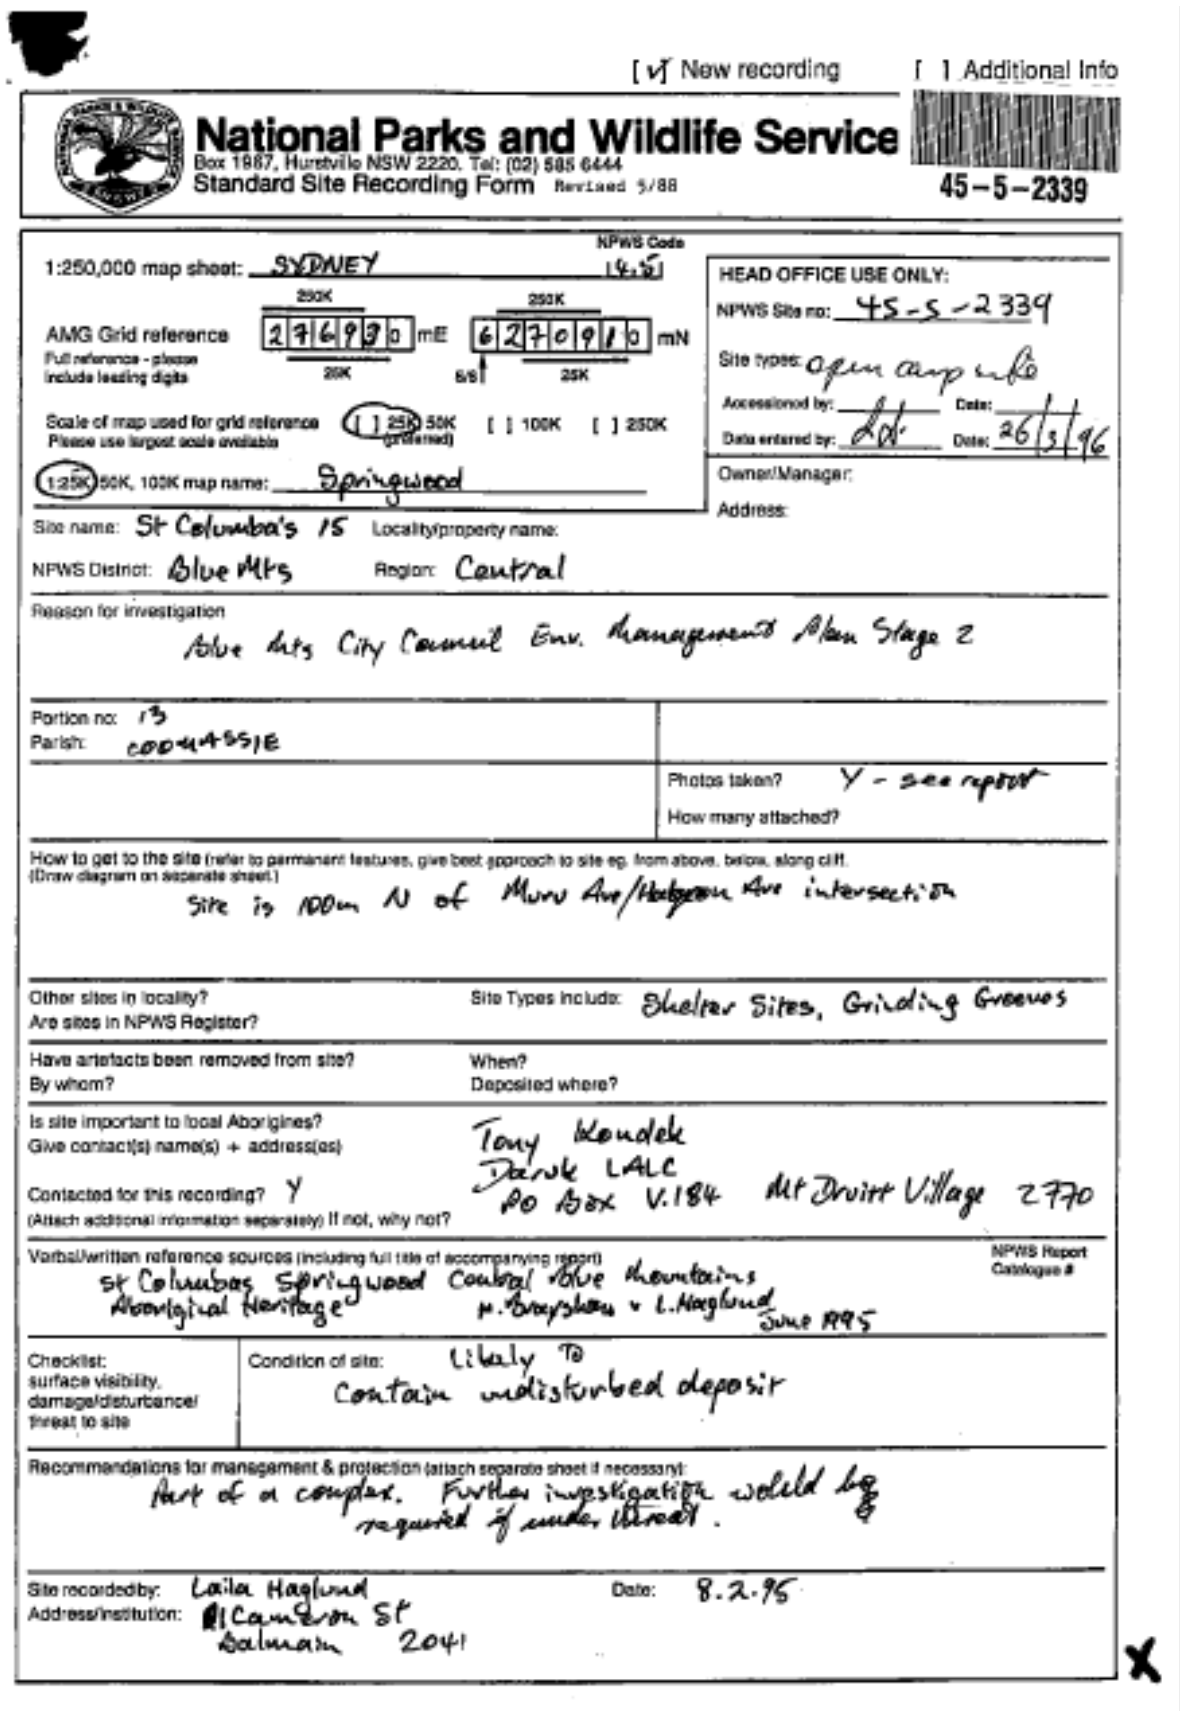 [✓] New recording [ ] Additional Info
National Parks and Wildlife Service
Box 1987, Hurstville NSW 2220. Tel: (02) 585 6444
Standard Site Recording Form Revised 5/88
45-5-2339
NPWS Code
1:250,000 map sheet: SYDNEY
HEAD OFFICE USE ONLY:
250K 250K
NPWS Site no: 45-5-2339
AMG Grid reference 276930 mE 6270910 mN
Full reference - please
include leading digits
25K 6/8 25K
Site types: open camp site
Accessioned by: Date:
Scale of map used for grid reference [ ] 25K, 50K [ ] 100K [ ] 250K
Please use largest scale available (preferred)
Data entered by: Date: 26/3/96
1:25K, 50K, 100K map name: Springwood
Owner/Manager:
Address:
Site name: St Columba's 15 Locality/property name:
NPWS District: Blue Mts Region: Central
Reason for investigation
Blue Mts City Council Env. Management Plan Stage 2
Portion no: 13
Parish: COOMASSIE
Photos taken? Y - see report
How many attached?
How to get to the site (refer to permanent features, give best approach to site eg. from above, below, along cliff.
(Draw diagram on separate sheet.)
Site is 100m N of Muru Ave/ Ave intersection
Other sites in locality? Site Types include: Shelter Sites, Grinding Grooves
Are sites in NPWS Register?
Have artefacts been removed from site? When?
By whom? Deposited where?
Is site important to local Aborigines?
Give contact(s) name(s) + address(es)
Tony Kondek
Daruk LALC
Contacted for this recording? Y
PO Box V.184 Mt Druitt Village 2770
(Attach additional information separately) If not, why not?
Verbal/written reference sources (including full title of accompanying report)
NPWS Report
Catalogue #
St Columbas Springwood Central Blue Mountains
Aboriginal Heritage H. Brayshaw & L. Haglund
June 1995
Checklist:
surface visibility,
damage/disturbance/
threat to site
Condition of site: Likely to
contain undisturbed deposit
Recommendations for management & protection (attach separate sheet if necessary):
Part of a complex. Further investigation would be
required if under threat.
Site recorded by: Laila Haglund Date: 8.2.95
Address/institution: Cameron St
Balmain 2041
X